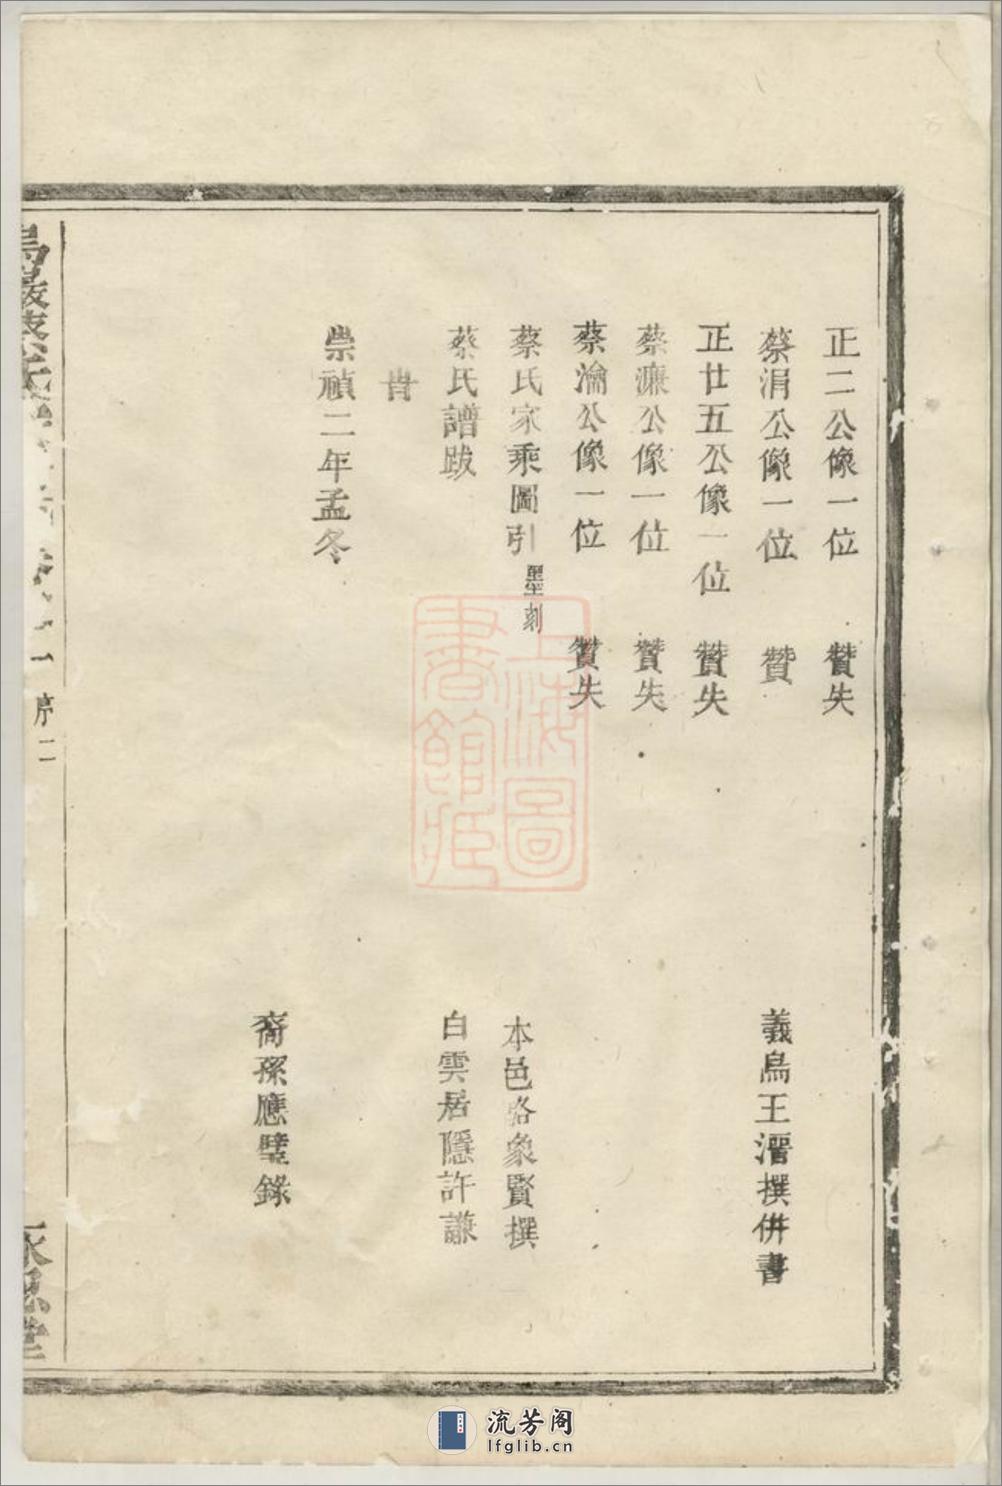 正二公像一位 贊失
蔡涓公像一位 贊 義烏王溍撰併書
正廿五公像一位 贊失
蔡濂公像一位 贊失
蔡瀹公像一位 贊失
蔡氏家乘圖引 墨刻 本邑路象賢撰
蔡氏譜跋 白雲居隱許謙
崇禎二年孟冬
裔孫應璧錄
序二
永思堂
上海圖書館藏
流芳阁
lfglib.cn